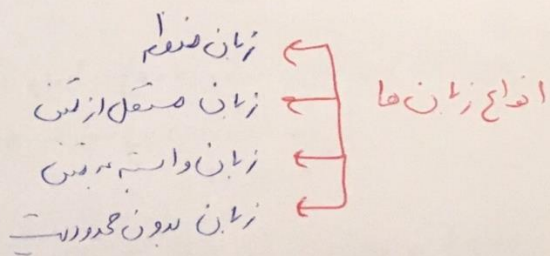 انواع زبان ها
زبان منظم
زبان مستقل از متن
زبان وابسته به متن
زبان بدون محدودیت